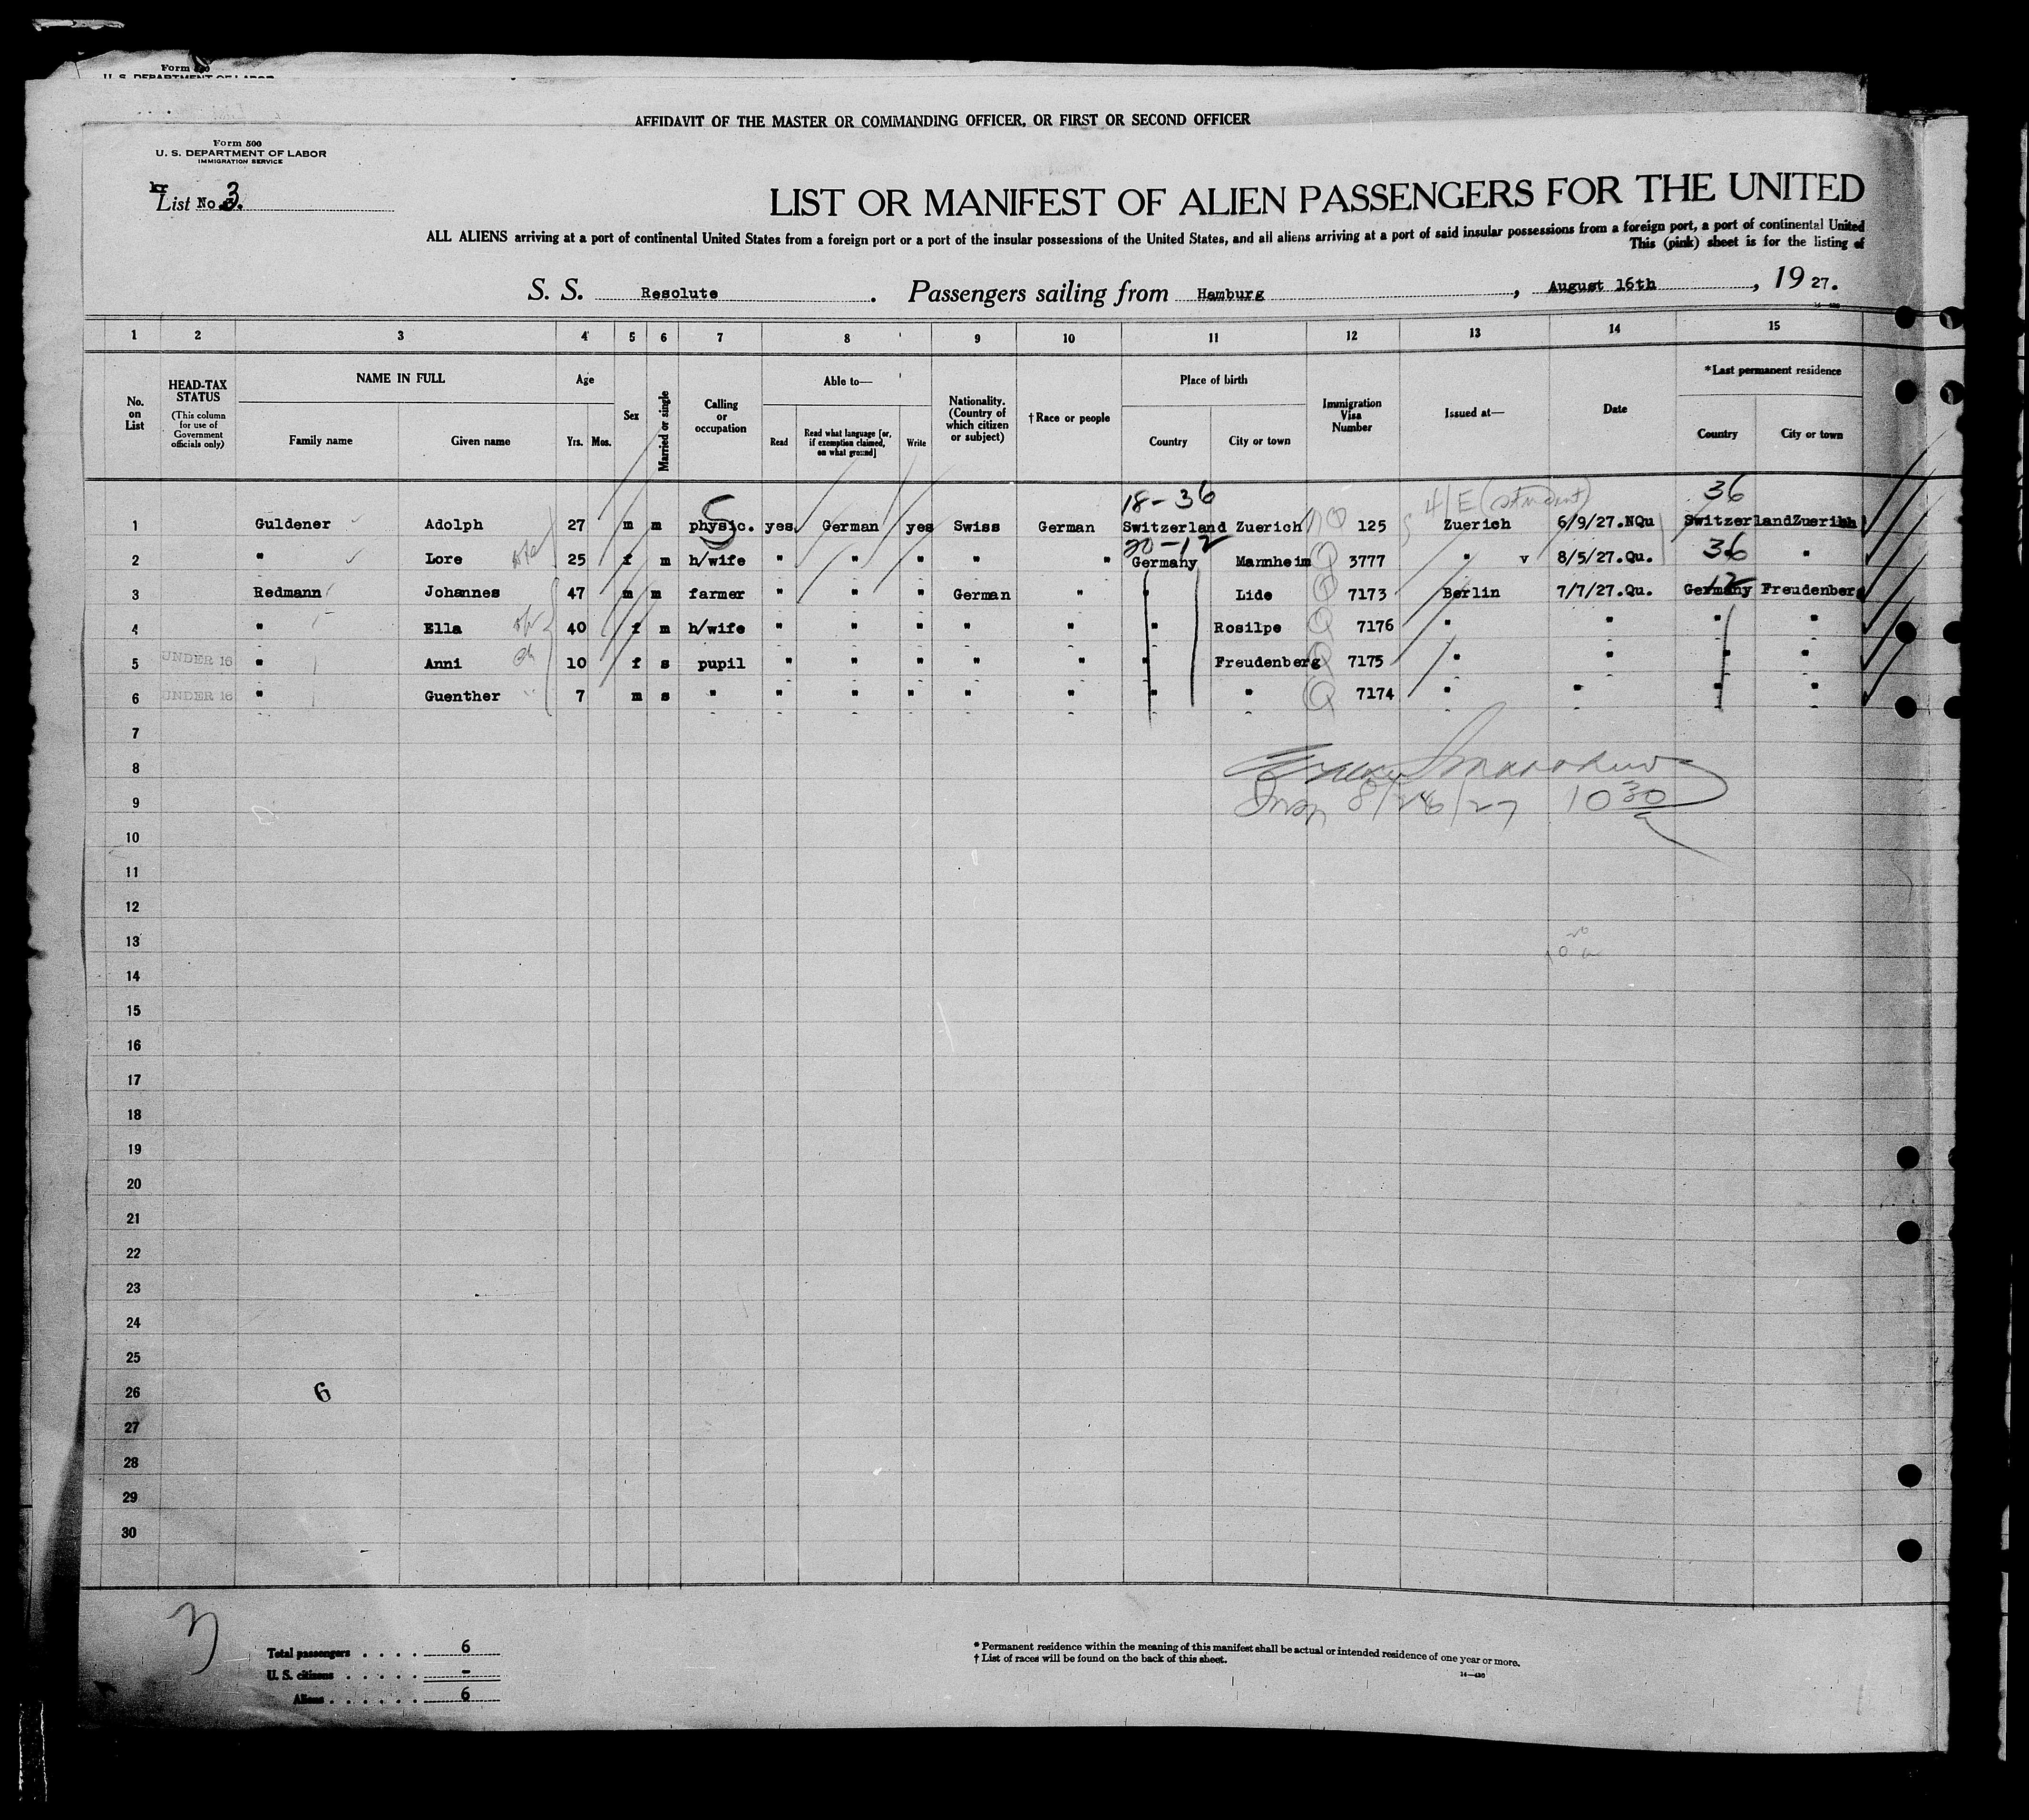 Form 500
U. S. DEPARTMENT OF LABOR
AFFIDAVIT OF THE MASTER OR COMMANDING OFFICER, OR FIRST OR SECOND OFFICER
Form 500
U. S. DEPARTMENT OF LABOR
IMMIGRATION SERVICE
List No. 3.
LIST OR MANIFEST OF ALIEN PASSENGERS FOR THE UNITED
ALL ALIENS arriving at a port of continental United States from a foreign port or a port of the insular possessions of the United States, and all aliens arriving at a port of said insular possessions from a foreign port, a port of continental United
This (pink) sheet is for the listing of
S. S. Resolute. Passengers sailing from Hamburg, August 16th, 1927.
1 2 3 4 5 6 7 8 9 10 11 12 13 14 15
No. on List
HEAD-TAX STATUS (This column for use of Government officials only)
NAME IN FULL Family name Given name
Age Yrs. Mos.
Sex
Married or single
Calling or occupation
Able to— Read Read what language [or, if exemption claimed, on what ground] Write
Nationality. (Country of which citizen or subject)
†Race or people
Place of birth Country City or town
Immigration Visa Number
Issued at—
Date
*Last permanent residence Country City or town
18-36 4/E (student) 36
1 Guldener Adolph 27 m m physic. yes German yes Swiss German Switzerland Zuerich 125 Zuerich 6/9/27.NQu Switzerland Zuerich
20-12 36
2 " Lore 25 f m h/wife " " " " " Germany Mannheim Q 3777 " v 8/5/27.Qu. "
12
3 Redmann Johannes 47 m m farmer " " " German " " Lide Q 7173 Berlin 7/7/27.Qu. Germany Freudenberg
4 " Ella 40 f m h/wife " " " " " " Rosilpe Q 7176 " " " "
5 UNDER 16 " Anni 10 f s pupil " " " " " " Freudenberg Q 7175 " " " "
6 UNDER 16 " Guenther 7 m s " " " " " " " " Q 7174 " " " "
7
8
9 Insp 8/26/27 10 30 a
10
11
12
13
14
15
16
17
18
19
20
21
22
23
24
25
26 6
27
28
29
30
3
Total passengers . . . . 6
U. S. citizens . . . . . -
Aliens . . . . . . 6
* Permanent residence within the meaning of this manifest shall be actual or intended residence of one year or more.
† List of races will be found on the back of this sheet.